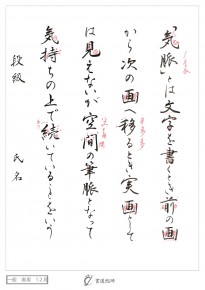 「気脈」とは文字を書くとき前の画
から次の画へ移るとき、実画として
は見えないが空間の筆脈となって
気持ちの上で続いていることをいう
段級 氏名
一般 毎筆 12月
書道教師